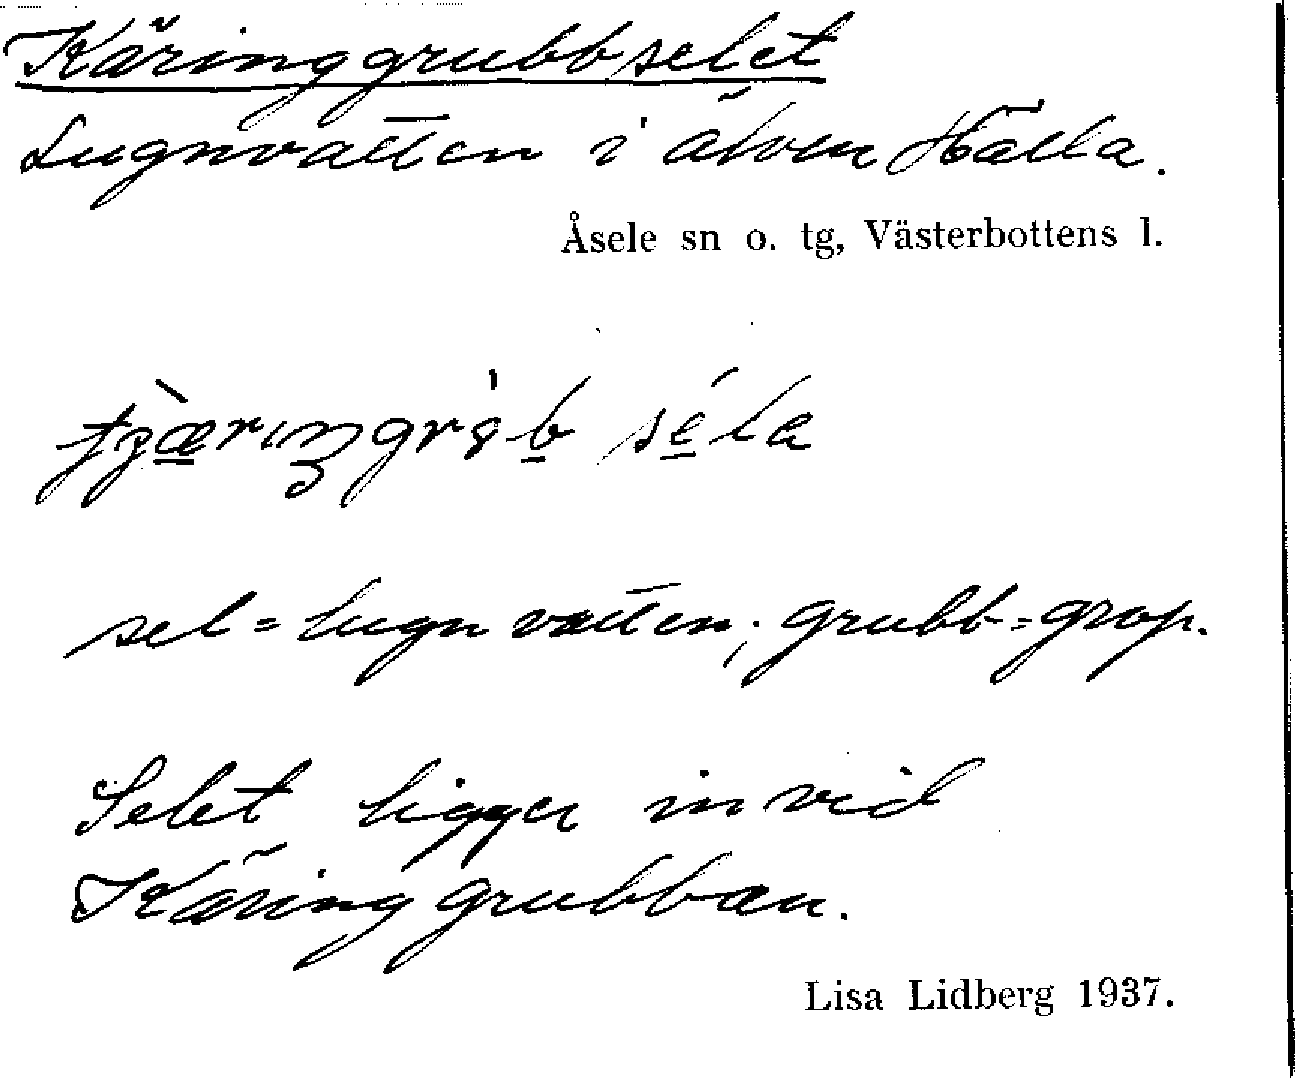 Käringgrubbselet
Lugnvatten i älven Hälla.
Åsele sn o. tg, Västerbottens l.
sel = lugnvatten; grubb = grop.
Selet ligger invid
Käringgrubban.
Lisa Lidberg 1937.